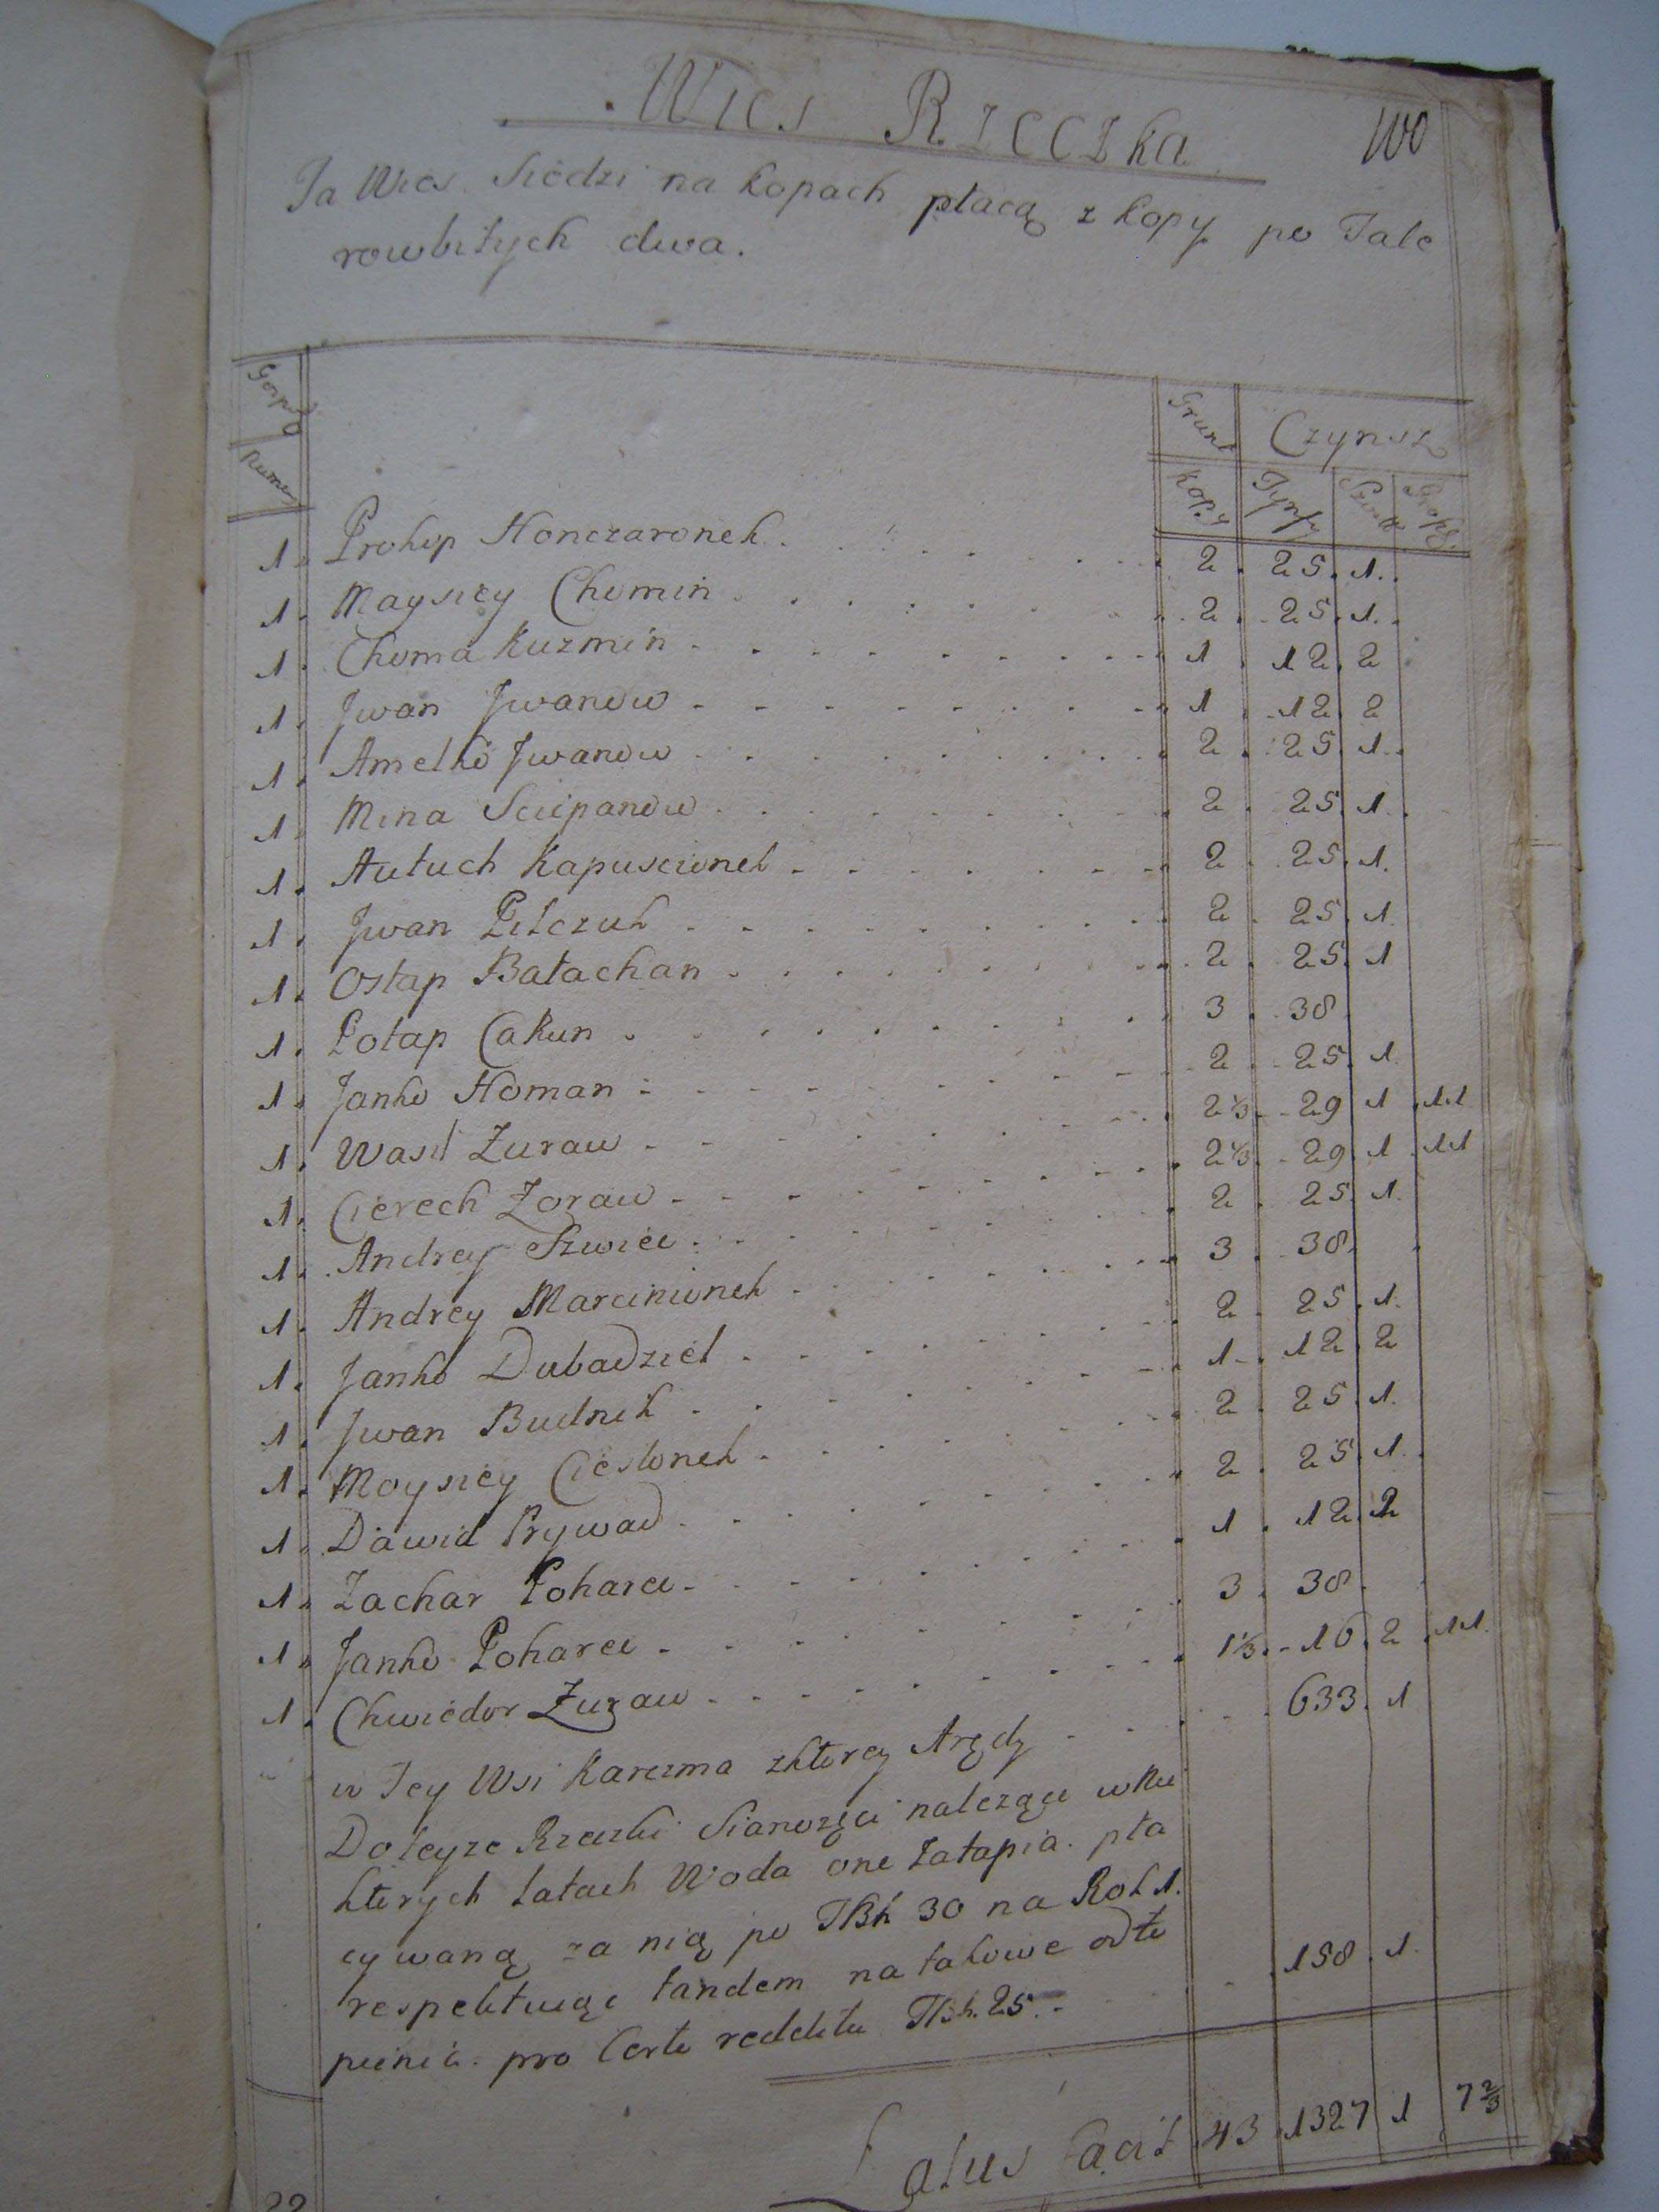 Wies Rzeczka
100
Ta Wies Siedzi na kopach płacą z kopy po Tale
rowbitych dwa.
Grunt Czynsz
Numer Kopy Tynfy
1. Prokop Honczaronek 2. 25. 1.
1. Maysiey Chomin 2. 25. 1.
1. Choma Kuzmin 1. 12. 2
1. Jwan Jwanow 1. 12. 2
1. Amelko Jwanow 2. 25. 1.
1. Mina Sciepanow 2. 25. 1.
1. Autuch Kapuscionek 2. 25. 1.
1. Jwan Pilczuk 2. 25. 1.
1. Ostap Bałachan 2. 25. 1
1. Potap Cakun 3. 38
1. Janko Homan 2. 25. 1.
1. Wasil Zuraw 2⅓ 29 1 11
1. Cierech Zoraw 2⅓ 29 1 11
1. Andrey Szwiec 2. 25. 1.
1. Andrey Marcinionek 3. 38.
1. Janko Dubadziel 2. 25. 1.
1. Jwan Budnik 1. 12. 2
1. Moysiey Cieslonek 2. 25. 1.
1. Dawid Prywad 2. 25. 1.
1. Zachar Poharci 1. 12. 2
1. Janko Poharci 3. 38.
1. Chwiedor Zuraw 1⅓. 16. 2. 11.
w Tey Wsi Karczma zktorey Arędy 633. 1
Doteyze Rzeczki Sianozęci nalezące wNie
ktorych Latach Woda one Zatapia. pła
cywaną za nią po TBh 30 na Rok 1.
respektuiąc tandem na takowe odto
pienia. pro Certo reddetu TBh. 25. 158. 1.
Latus facit 43. 1327 1 7⅔
22